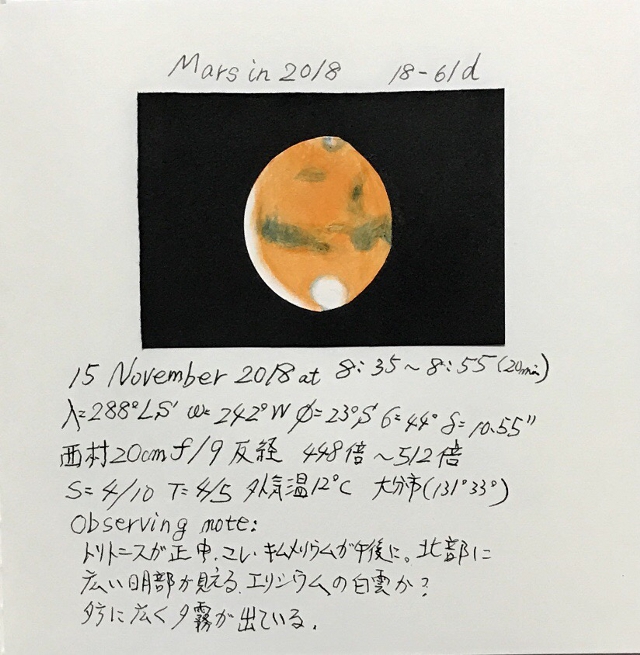 Mars in 2018 18-61d
15 November 2018 at 8:35~8:55(20min)
λ=288°LS ω=242°W φ=23°S G=44° δ=10.55"
西村20cm f/9 反経 448倍~512倍
S=4/10 T=4/5 外気温12°C 大分市(131°33°)
Observing note:
トリトニスが正中、こい キムメリウムが午後に。北部に
広い明部が見える、エリシウムの白雲か?
夕方に広く夕霧が出ている。